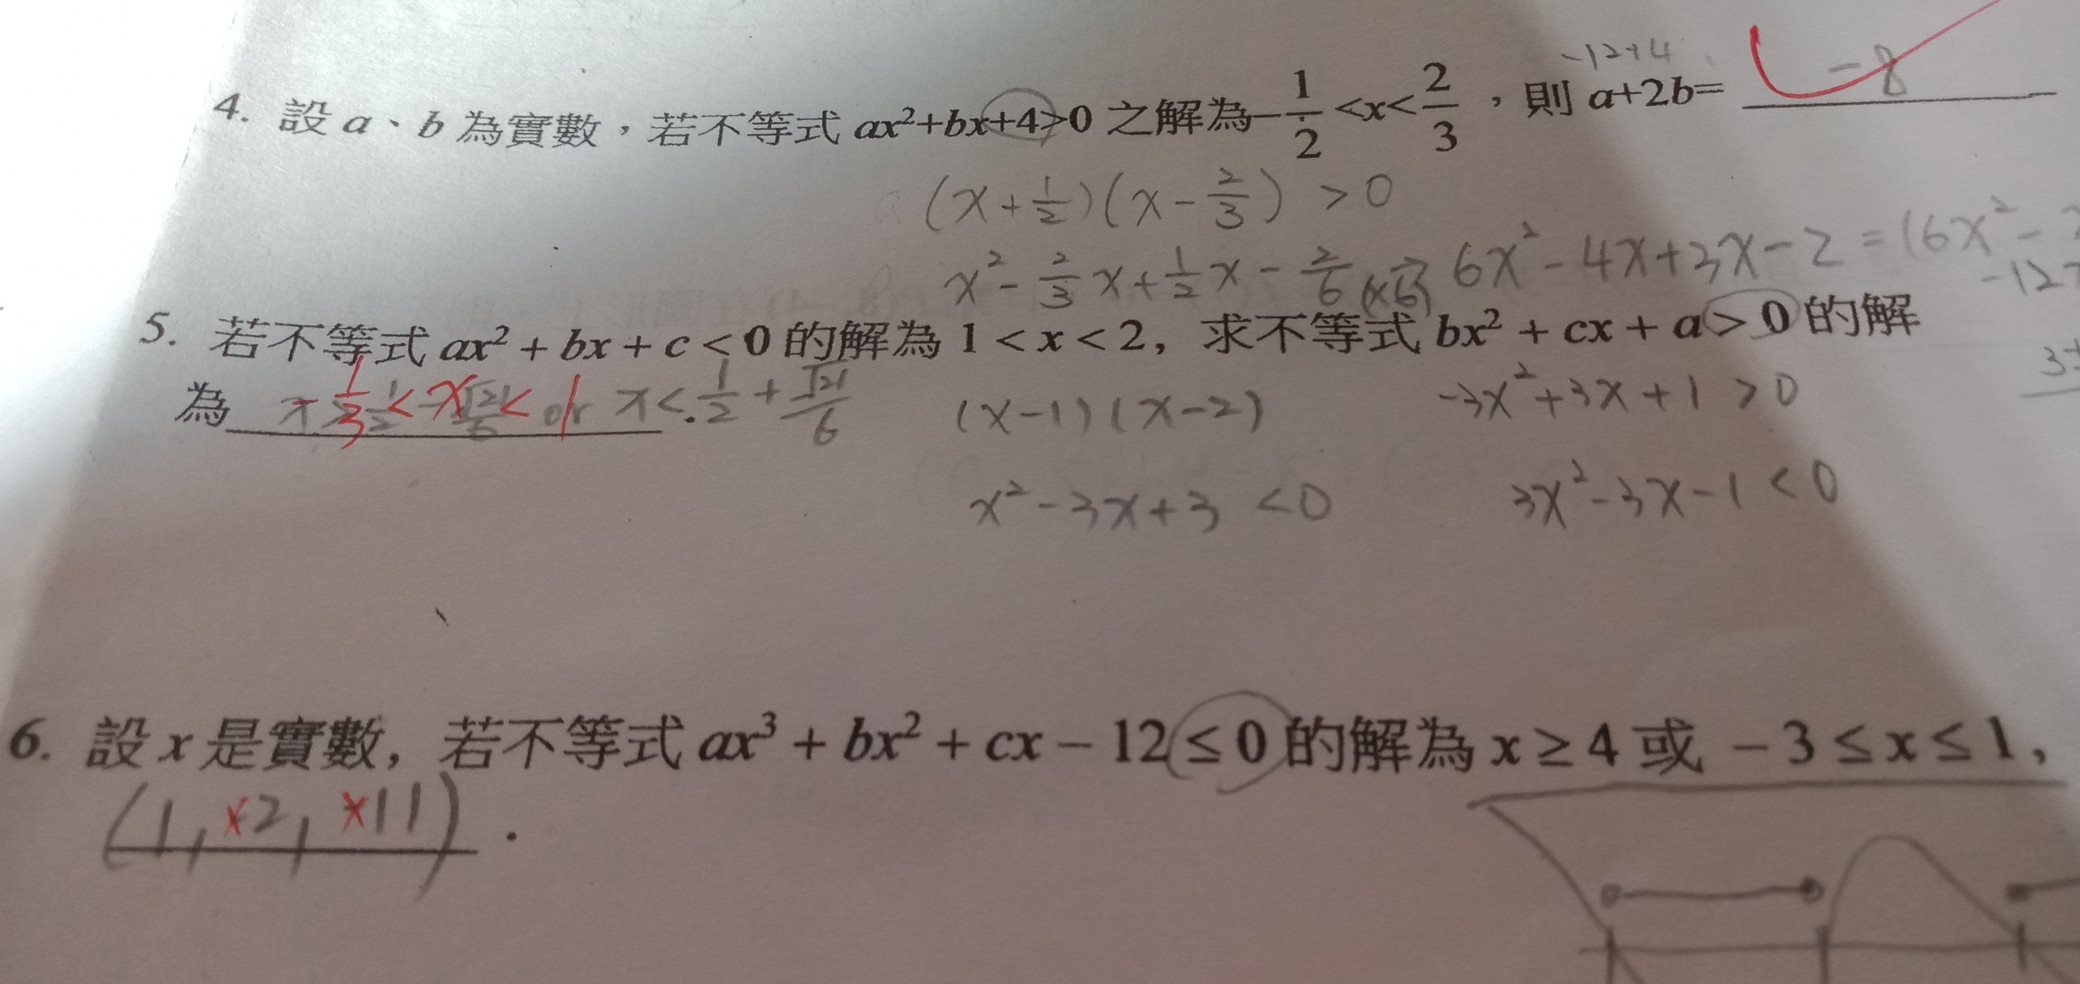 -12+4
4. 設 a、b 為實數，若不等式 ax²+bx+4>0 之解為 -1/2 <x< 2/3 ，則 a+2b= -8
(x+1/2)(x-2/3) >0
x²-2/3x+1/2x-2/6 (x6) 6x²-4x+3x-2 =(6x²-
-12
5. 若不等式 ax² + bx + c < 0 的解為 1 < x < 2, 求不等式 bx² + cx + a > 0 的解
為 -1/3 < x < 1 or x< 1/2 + √21/6 .
(x-1)(x-2) -3x²+3x+1 >0
x²-3x+3 <0 3x²-3x-1 <0
6. 設 x 是實數, 若不等式 ax³ + bx² + cx - 12 ≤ 0 的解為 x ≥ 4 或 - 3 ≤ x ≤ 1 ,
(1, ×2, ×11) .